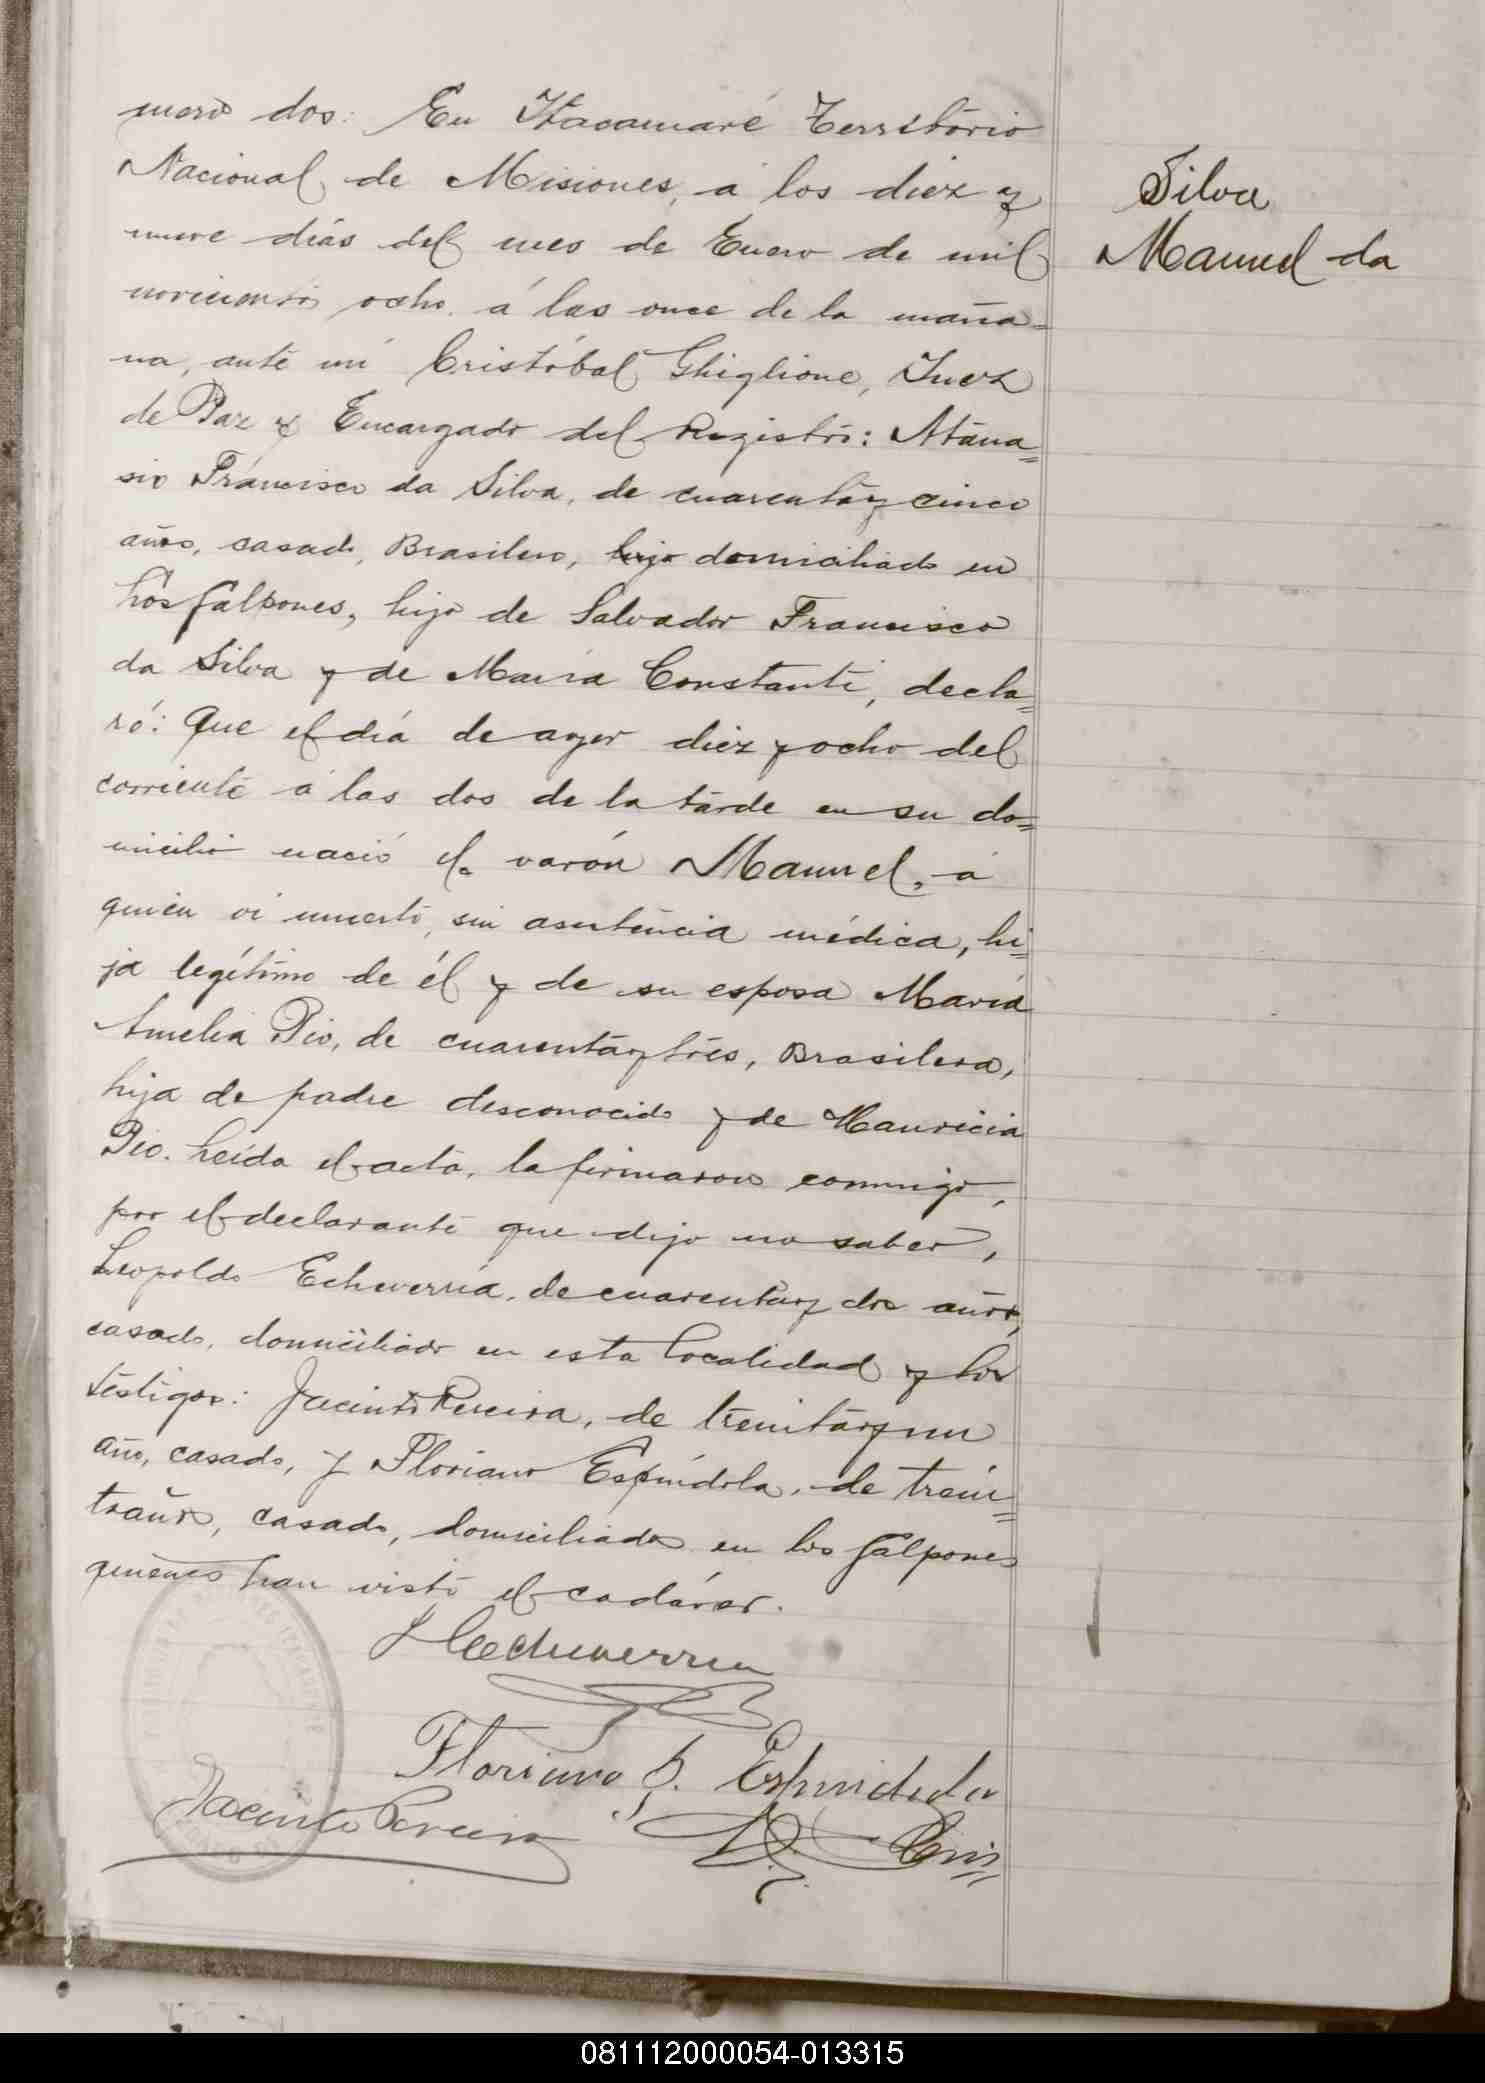 mero dos: En Itacaruaré Territorio
Nacional de Misiones, á los diez y
nueve dias del mes de Enero de mil
novecientos ocho, á las once de la maña=
na, ante mi Cristóbal Ghiglione, Juez
de Paz y Encargado del Registro: Atana=
sio Francisco da Silva, de cuarenta y cinco
años, casado, Brasilero, hijo domiciliado en
Los Galpones, hijo de Salvador Francisco
da Silva y de Maria Constante, decla=
ró: Que el día de ayer diez y ocho del
corriente á las dos de la tarde en su do=
micilio nació el varón Manuel, á
quien vi muerto, sin asistencia médica, hi=
jo legítimo de él y de su esposa Maria
Amelia Pio, de cuarenta y tres, Brasilera,
hija de padre desconocido y de Mauricia
Pio. Leída el acta, la firmaron conmigo,
por el declarante que dijo no saber,
Leopoldo Echeverría, de cuarenta y dos años,
casado, domiciliado en esta localidad y los
testigos: Jacinto Pereira, de treinta y un
año, casado, y Floriano Espíndola, de trein=
ta años, casado, domiciliados en los Galpones
quienes han visto el cadáver.
L Echeverria
Floriano S. Espindola
Jacinto Pereira
Cris=
Silva
Manuel da
081112000054-013315